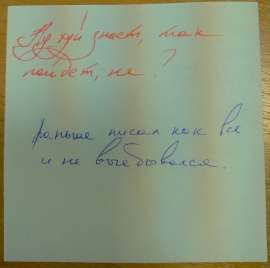 Ну хуй знает, так
пойдет, не?
раньше писал как все
и не выебывался.